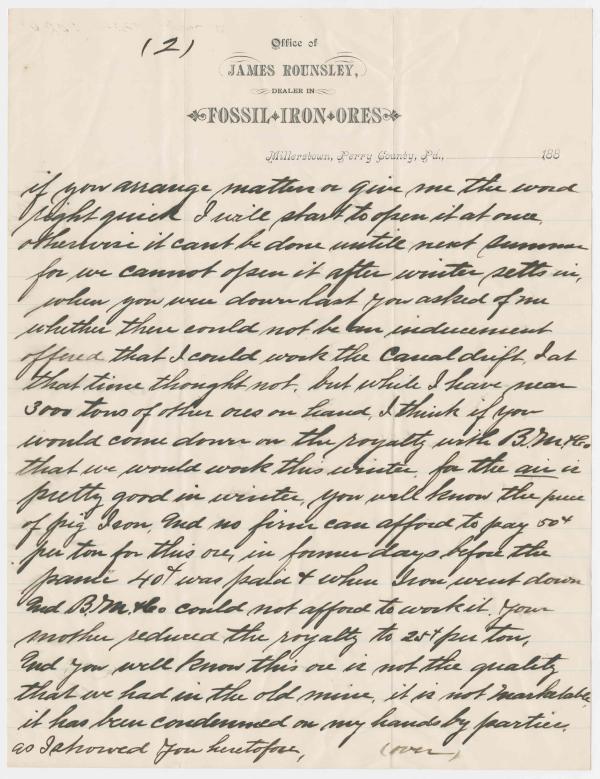 (2)
Office of
JAMES ROUNSLEY,
DEALER IN
FOSSIL IRON ORES
Millerstown, Perry County, Pa., 188
if you arrange matters or give me the word
right quick I will start to open it at once,
otherwise it cant be done untill next summer
for we cannot open it after winter setts in,
when you were down last you asked of me
whether there could not be an inducement
offered that I could work the Canal drift, I at
that time thought not, but while I have near
3000 tons of other ores on hand, I think if you
would come down on the royalty with B. M. & Co
that we would work this winter, for the air is
pretty good in winter, you well know the price
of pig Iron, And no firm can afford to pay 50¢
per ton for this ore, in former days before the
panic 40¢ was paid & when Iron went down
And B. M. & Co could not afford to work it, Your
mother reduced the royalty to 25¢ per ton,
And you well know this ore is not the quality
that we had in the old mine, it is not marketable
it has been condemned on my hands by parties,
as I showed you heretofore, (over)